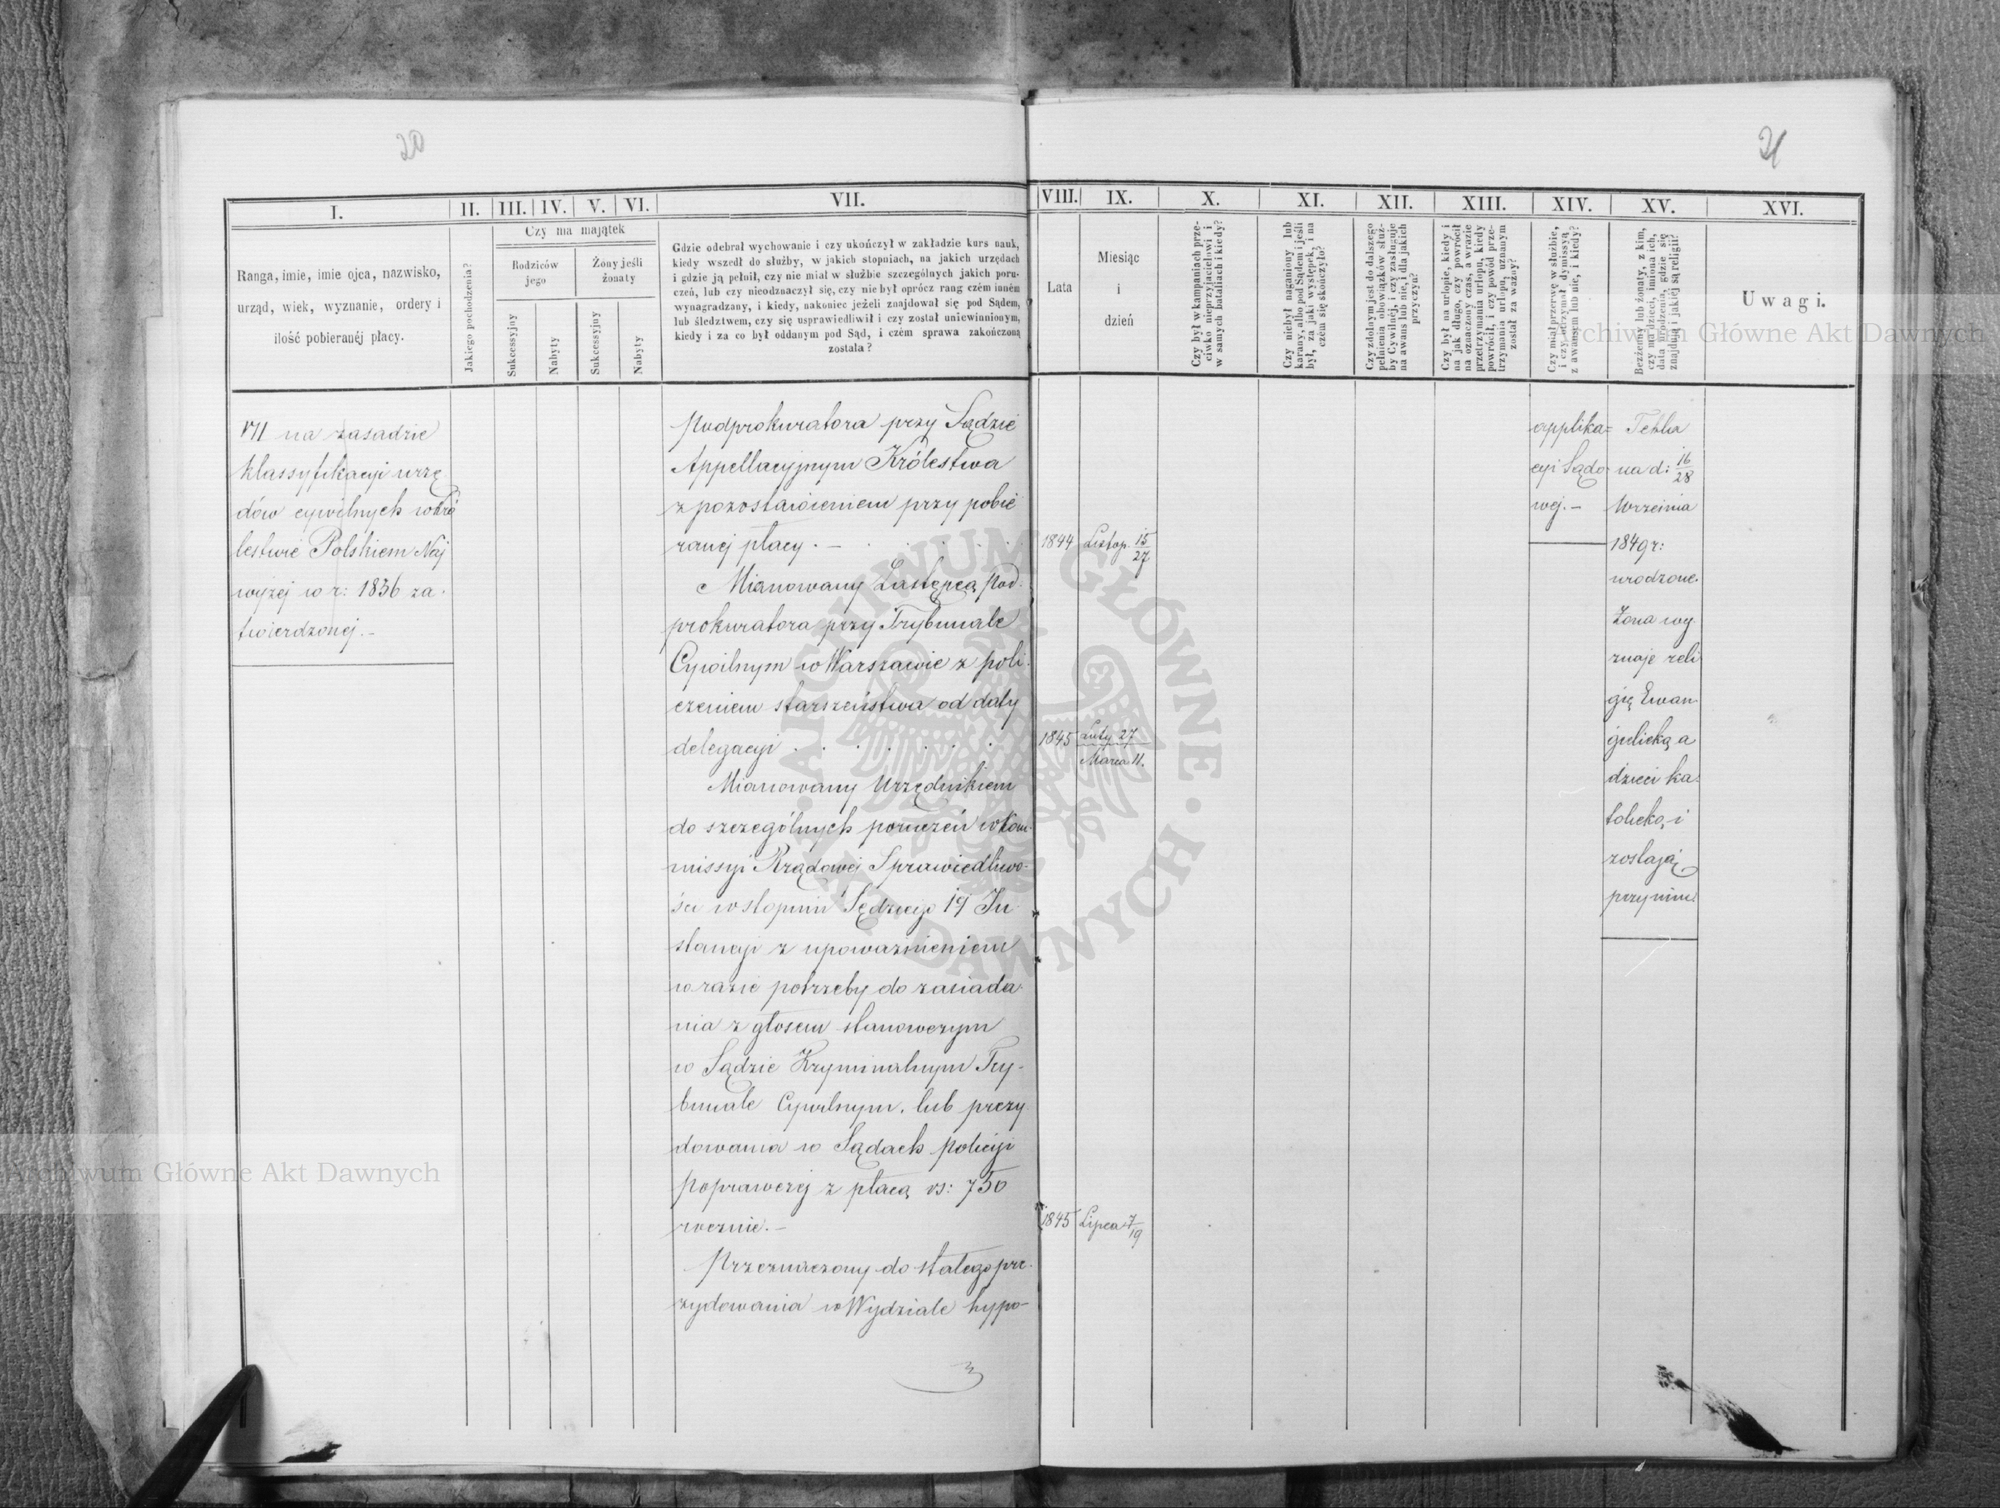 20
21
I.
II.
III.
IV.
V.
VI.
VII.
VIII.
IX.
X.
XI.
XII.
XIII.
XIV.
XV.
XVI.
Ranga, imie, imie ojca, nazwisko,
urząd, wiek, wyznanie, ordery i
ilość pobieranéj płacy.
Jakiego pochodzenia?
Czy ma majątek
Rodziców
jego
Żony jeśli
żonaty
Sukcessyjny
Nabyty
Sukcessyjny
Nabyty
Gdzie odebrał wychowanie i czy ukończył w zakładzie kurs nauk,
kiedy wszedł do służby, w jakich stopniach, na jakich urzędach
i gdzie ją pełnił, czy nie miał w służbie szczególnych jakich poru-
czeń, lub czy nieodznaczył się, czy nie był oprócz rang czém inném
wynagradzany, i kiedy, nakoniec jeżeli znajdował się pod Sądem,
lub śledztwem, czy się usprawiedliwił i czy został uniewinnionym,
kiedy i za co był oddanym pod Sąd, i czém sprawa zakończoną
została?
Lata
Miesiąc
i
dzień
Czy był w kampaniach prze-
ciwko nieprzyjacielowi i
w samych batalijach i kiedy?
Czy niebył naganiony lub
karany, albo pod Sądem i jeśli
był, za jaki występek, i na
czém się skończyło?
Czy zdolnym jest do dalszego
pełnienia obowiązków służ-
by Cywilnéj, i czy zasługuje
na awans lub nie, i dla jakich
przyczyn?
Czy był na urlopie, kiedy i
na jak długo, czy powrócił
na oznaczony czas, a w razie
przetrzymania urlopu, kiedy
powrócił, i czy powód prze-
trzymania urlopu, uznanym
został za ważny?
Czy miał przerwę w służbie,
i czy otrzymał dymissyą
z awansem lub nie, i kiedy?
Bezżenny lub żonaty, z kim,
czy ma dzieci, imiona ich,
data urodzenia, gdzie się
znajdują i jakiéj są religii?
Uwagi.
VII na zasadzie
klassyfikacyi urzę-
dów cywilnych w Kró
lestwie Polskiem Naj
wyżej w r: 1836 za-
twierdzonej.-
Podprokuratora przy Sądzie
Appellacyjnym Królestwa
z pozostawieniem przy pobie
ranej płacy. -
1844 Listop. 15/27
Mianowany Zastępcą Pod-
prokuratora przy Trybunale
Cywilnym w Warszawie z poli-
czeniem starszeństwa od daty
delegacyi
1845 Luty 27
Marca 11.
Mianowany Urzędnikiem
do szczególnych poruczeń w Kom-
missyi Rządowej Sprawiedliwo-
ści w stopniu Sędziego 1ej In
stancyi z upoważnieniem
w razie potrzeby do zasiada-
nia z głosem stanowczym
w Sądzie Kryminalnym Try-
bunale Cywilnym. lub prezy-
dowania w Sądach policyi
poprawczej z płacą rs: 750
rocznie.-
1845 Lipca 7/19
Przeznaczony do stałego pre-
zydowania w Wydziale hypo-
3
applika=
cyi Sądo-
wej.-
Tekla
na d: 16/28
Września
1849 r:
urodzone.
Żona wy
znaje reli
gię Ewan
gelicką a
dzieci ka-
tolicką i
zostają
przy nim
Archiwum Główne Akt Dawnych
Archiwum Główne Akt Dawnych
ARCHIWUM GŁÓWNE AKT DAWNYCH